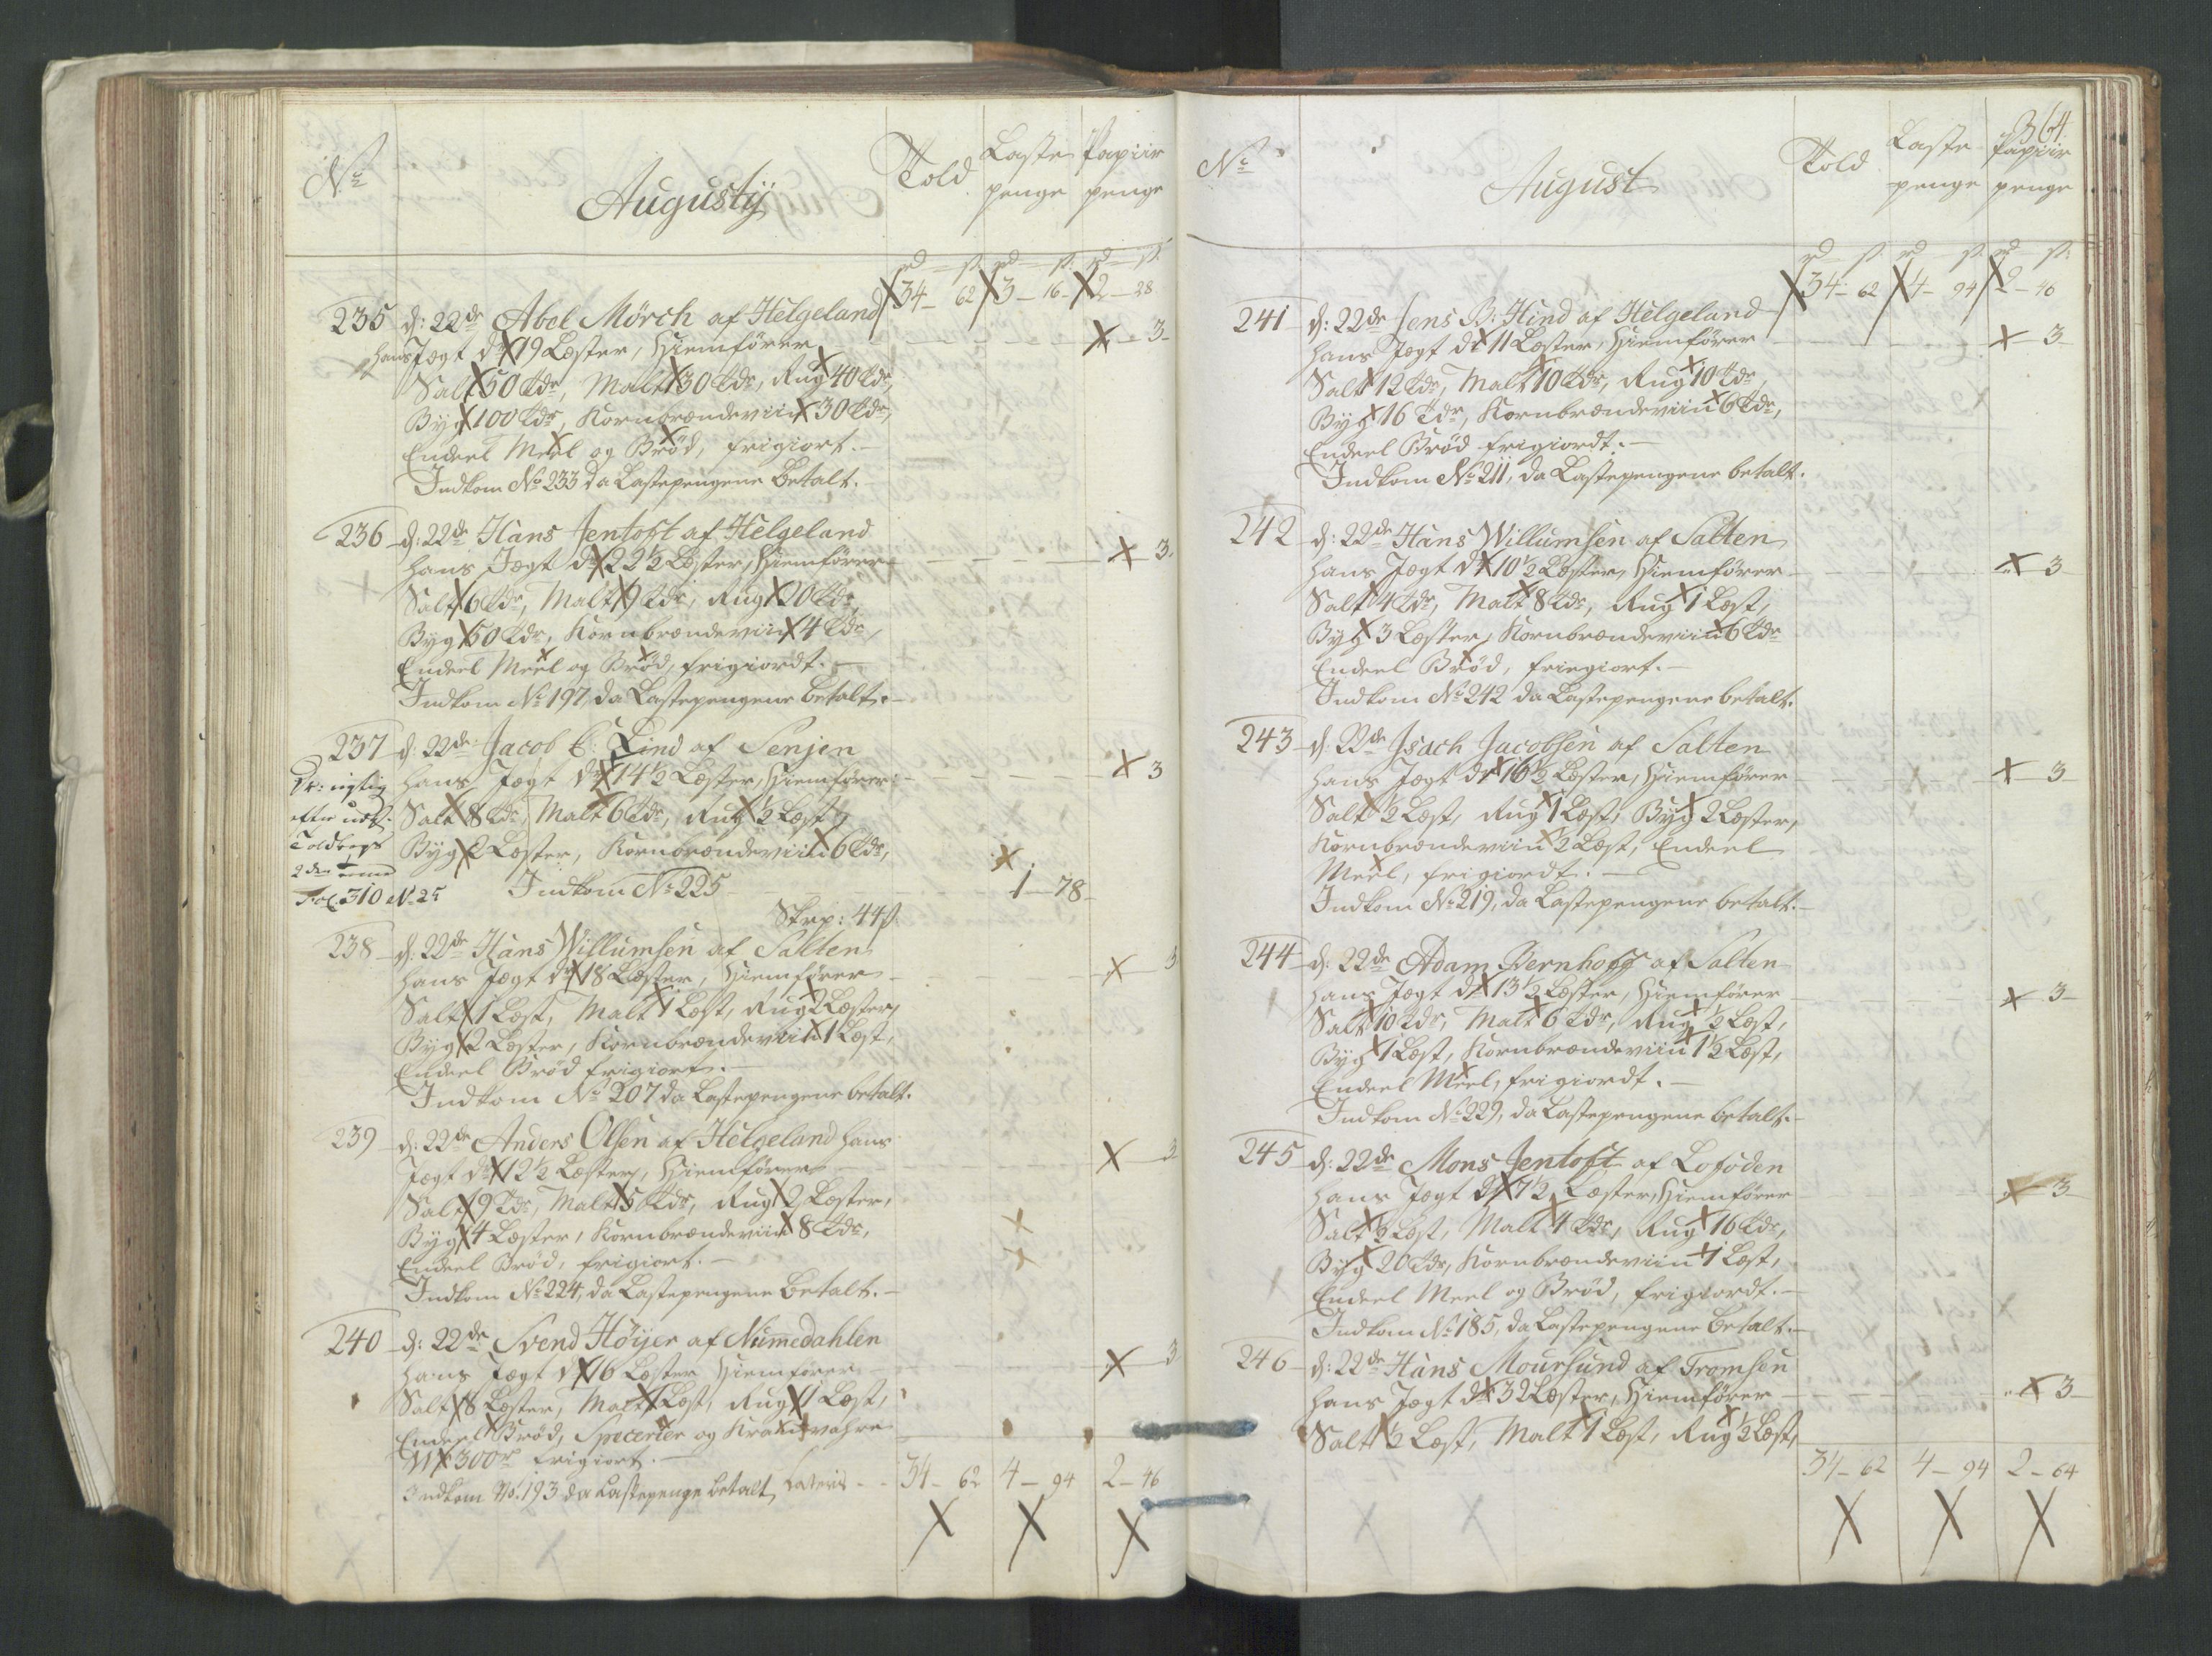 No
Augustÿ
Told
Laste penge
Papiir penge
rd ß. rd ß. rd ß.
34 - 62 3 - 16 - 2 - 28
235 d: 22de Abel Mörch af Helgeland
hans Jægt dr 19 Læster, Hiemfører - 3 -
Salt 50 Tdr, Malt 30 Tdr, Rug 40 Tdr,
Byg 100 Tdr, Kornbrændeviin 30 Tdr,
Endeel Meel og Brød, frigiort. -
Indkom No 233 da Lastepengene betalt.
236 d: 22de Hans Jentoft af Helgeland
hans Jægt dr 22 1/2 Læster, Hiemfører - 3.
Salt 6 Tdr, Malt 9 Tdr, Rug 20 Tdr,
Byg 50 Tdr, Kornbrændeviin 4 Tdr,
Endeel Meel og Brød, frigiordt. -
Indkom No 197, da Lastepengene betalt. -
237 d: 22de Jacob E: Lind af Senjen
hans Jægt dr 14 1/2 Læster, Hiemfører: - 3
Salt 8 Tdr, Malt 6 Tdr, Rug 1/2 Læst,
Byg 2 Læster, Kornbrændeviin 6 Tdr,
Indkom No 225 - 1 - 78 -
efter
Toldbogs
2den
Fol. 310 No 25
Skrp: 44 ß.
238 d: 22de Hans Willumsen af Salten
hans Jægt dr 18 Læster, Hiemfører - 3
Salt 1 Læst, Malt 1 Læst, Rug 2 Læster,
Byg 2 Læster, Kornbrændeviin 1 Læst,
Endeel Brød frigiort. -
Indkom No 207 da Lastepengene betalt.
239 d: 22de Anders Olsen af Helgeland hans
Jægt dr 12 1/2 Læster, Hiemfører - 3
Salt 9 Tdr, Malt 5 Tdr, Rug 2 Læster,
Byg 4 Læster, Kornbrændeviin 8 Tdr,
Endeel Brød, frigiort. -
Indkom No 224, da Lastepengene betalt. -
240 d: 22de Svend Höyer af Numedahlen
hans Jægt dr 16 Læster Hiemfører - 3
Salt 8 Læster, Malt 1 Læst, Rug 1 Læst,
Endeel Brød, Specerier og Kramvahre
300 frigiort. -
Indkom No. 193 da Lastepenge betalt, Lateris - - 34 - 62 4 - 94 2 - 46
364.
No
August
Told
Laste penge
Papiir penge
rd ß. rd ß. rd ß.
34 - 62 4 - 94 2 - 46
241 d: 22de Jens B: Hind af Helgeland
hans Jægt dr 11 Læster, Hiemfører - 3
Salt 12 Tdr, Malt 10 Tdr, Rug 10 Tdr,
Byg 16 Tdr, Kornbrændeviin 6 Tdr,
Endeel Brød frigiordt. -
Indkom No 211, da Lastepengene betalt.
242 d: 22de Hans Willumsen af Salten
hans Jægt dr 10 1/2 Læster, Hiemfører - 3
Salt 4 Tdr, Malt 8 Tdr, Rug 1 Læst,
Byg 3 Læster, Kornbrændeviin 6 Tdr
Endeel Brød, friegiort. -
Indkom No 242 da Lastepengene betalt.
243 d: 22de Isach Jacobsen af Salten
hans Jægt dr 16 1/2 Læster, Hiemfører - 3
Salt 1/2 Læst, Rug 1 Læst, Byg 2 Læster,
Kornbrændeviin 1/2 Læst, Endeel
Meel, frigiordt. -
Indkom No 219, da Lastepengene betalt. -
244 d: 22de Adam Bernhoft af Salten
hans Jægt dr 13 1/2 Læster, Hiemfører - 3 -
Salt 10 Tdr, Malt 6 Tdr, Rug 1/2 Læst,
Byg 1 Læst, Kornbrændeviin 1 1/2 Læst,
Endeel Meel, frigiordt. -
Indkom No 229, da Lastepengene betalt. -
245 d: 22de Mons Jentoft af Lofoden
hans Jægt dr 7 1/2 Læster, Hiemfører - 3 -
Salt 1/2 Læst, Malt 4 Tdr, Rug 16 Tdr,
Byg 20 Tdr, Kornbrændeviin 1 Læst,
Endeel Meel og Brød, frigiordt. -
Indkom No 185, da Lastepengene betalt. -
246 d: 22de Hans Moursund af Tromsen
hans Jægt dr 32 Læster, Hiemfører - 3 -
Salt 1/2 Læst, Malt 1 Læst, Rug 1/2 Læst,
34 - 62 4 - 94 2 - 64